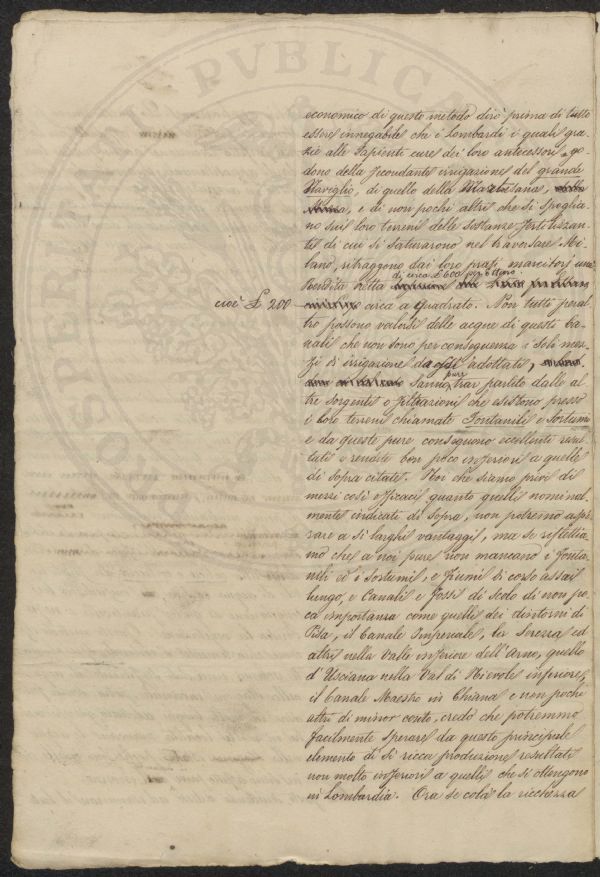 economico di questo metodo dirò prima di tutto
essere innegabile che i Lombardi i quali gra-
zie alle sapienti cure dei loro antecessori, go-
dono della fecondante irrigazione del grande
Naviglio, di quello della Martesana,
e di non pochi altri che si spoglia-
no sui loro terreni delle sostanze fertilizzan-
ti di cui si saturarono nel traversare Mi-
lano, ritraggono dai loro prati marcitori una
di circa £ 600 per ettaro
rendita netta
cioè £ 200
circa a quadrato. Non tutti peral-
tro possono valersi delle acque di questi Ca-
nali che non sono per conseguenza i soli mez-
zi di irrigazione da essi adottati,
sanno pure trar partito dalle al-
tre sorgenti o filtrazioni che esistono presso
i loro terreni chiamate Fontanili e Sortumi
e da queste pure conseguono eccellenti resul-
tati e rendite ben poco inferiori a quelle
di sopra citate. Noi che siamo privi di
mezzi così efficaci quanto quelli nominal-
mente indicati di sopra, non potremo aspi-
rare a sì larghi vantaggi, ma se reflettia-
mo che a noi pure non mancano i Fonta-
nili ed i Sortumi, e Fiumi di corso assai
lungo, e Canali e Fossi di scolo di non po-
ca importanza come quelli dei dintorni di
Pisa, il Canale Imperiale, la Serezza ed
altri nella Valle inferiore dell'Arno, quello
d'Usciana nella Val di Nievole inferiore,
il Canale Maestro in Chiana e non pochi
altri di minor conto, credo che potremmo
facilmente sperare da questo principale
elemento di sì ricca produzione resultati
non molto inferiori a quelli che si ottengono
in Lombardia. Ora se colà la ricchezza
PVBLICA